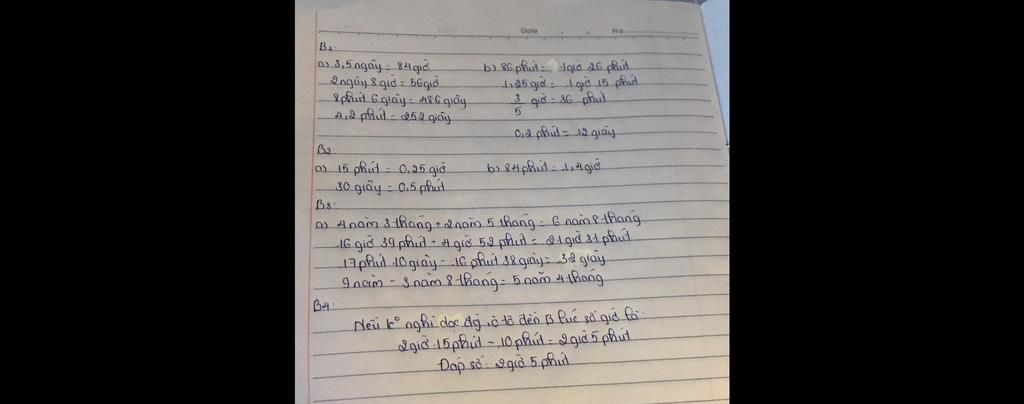 Date No
B1:
a) 3,5 ngày = 84 giờ b) 86 phút = 1 giờ 26 phút
2 ngày 8 giờ = 56 giờ 1,25 giờ = 1 giờ 15 phút
8 phút 6 giây = 486 giây 3/5 giờ = 36 phút
4,2 phút = 252 giây
0,2 phút = 12 giây
B2:
a) 15 phút = 0,25 giờ b) 84 phút = 1,4 giờ
30 giây = 0,5 phút
B3:
a) 4 năm 3 tháng + 2 năm 5 tháng = 6 năm 8 tháng
16 giờ 39 phút + 4 giờ 52 phút = 21 giờ 31 phút
17 phút 10 giây - 16 phút 38 giây = 32 giây
9 năm - 3 năm 8 tháng = 5 năm 4 tháng
B4:
Nếu k° nghỉ dọc đg, ô tô đến B lúc số giờ là:
2 giờ 15 phút - 10 phút = 2 giờ 5 phút
Đáp số: 2 giờ 5 phút